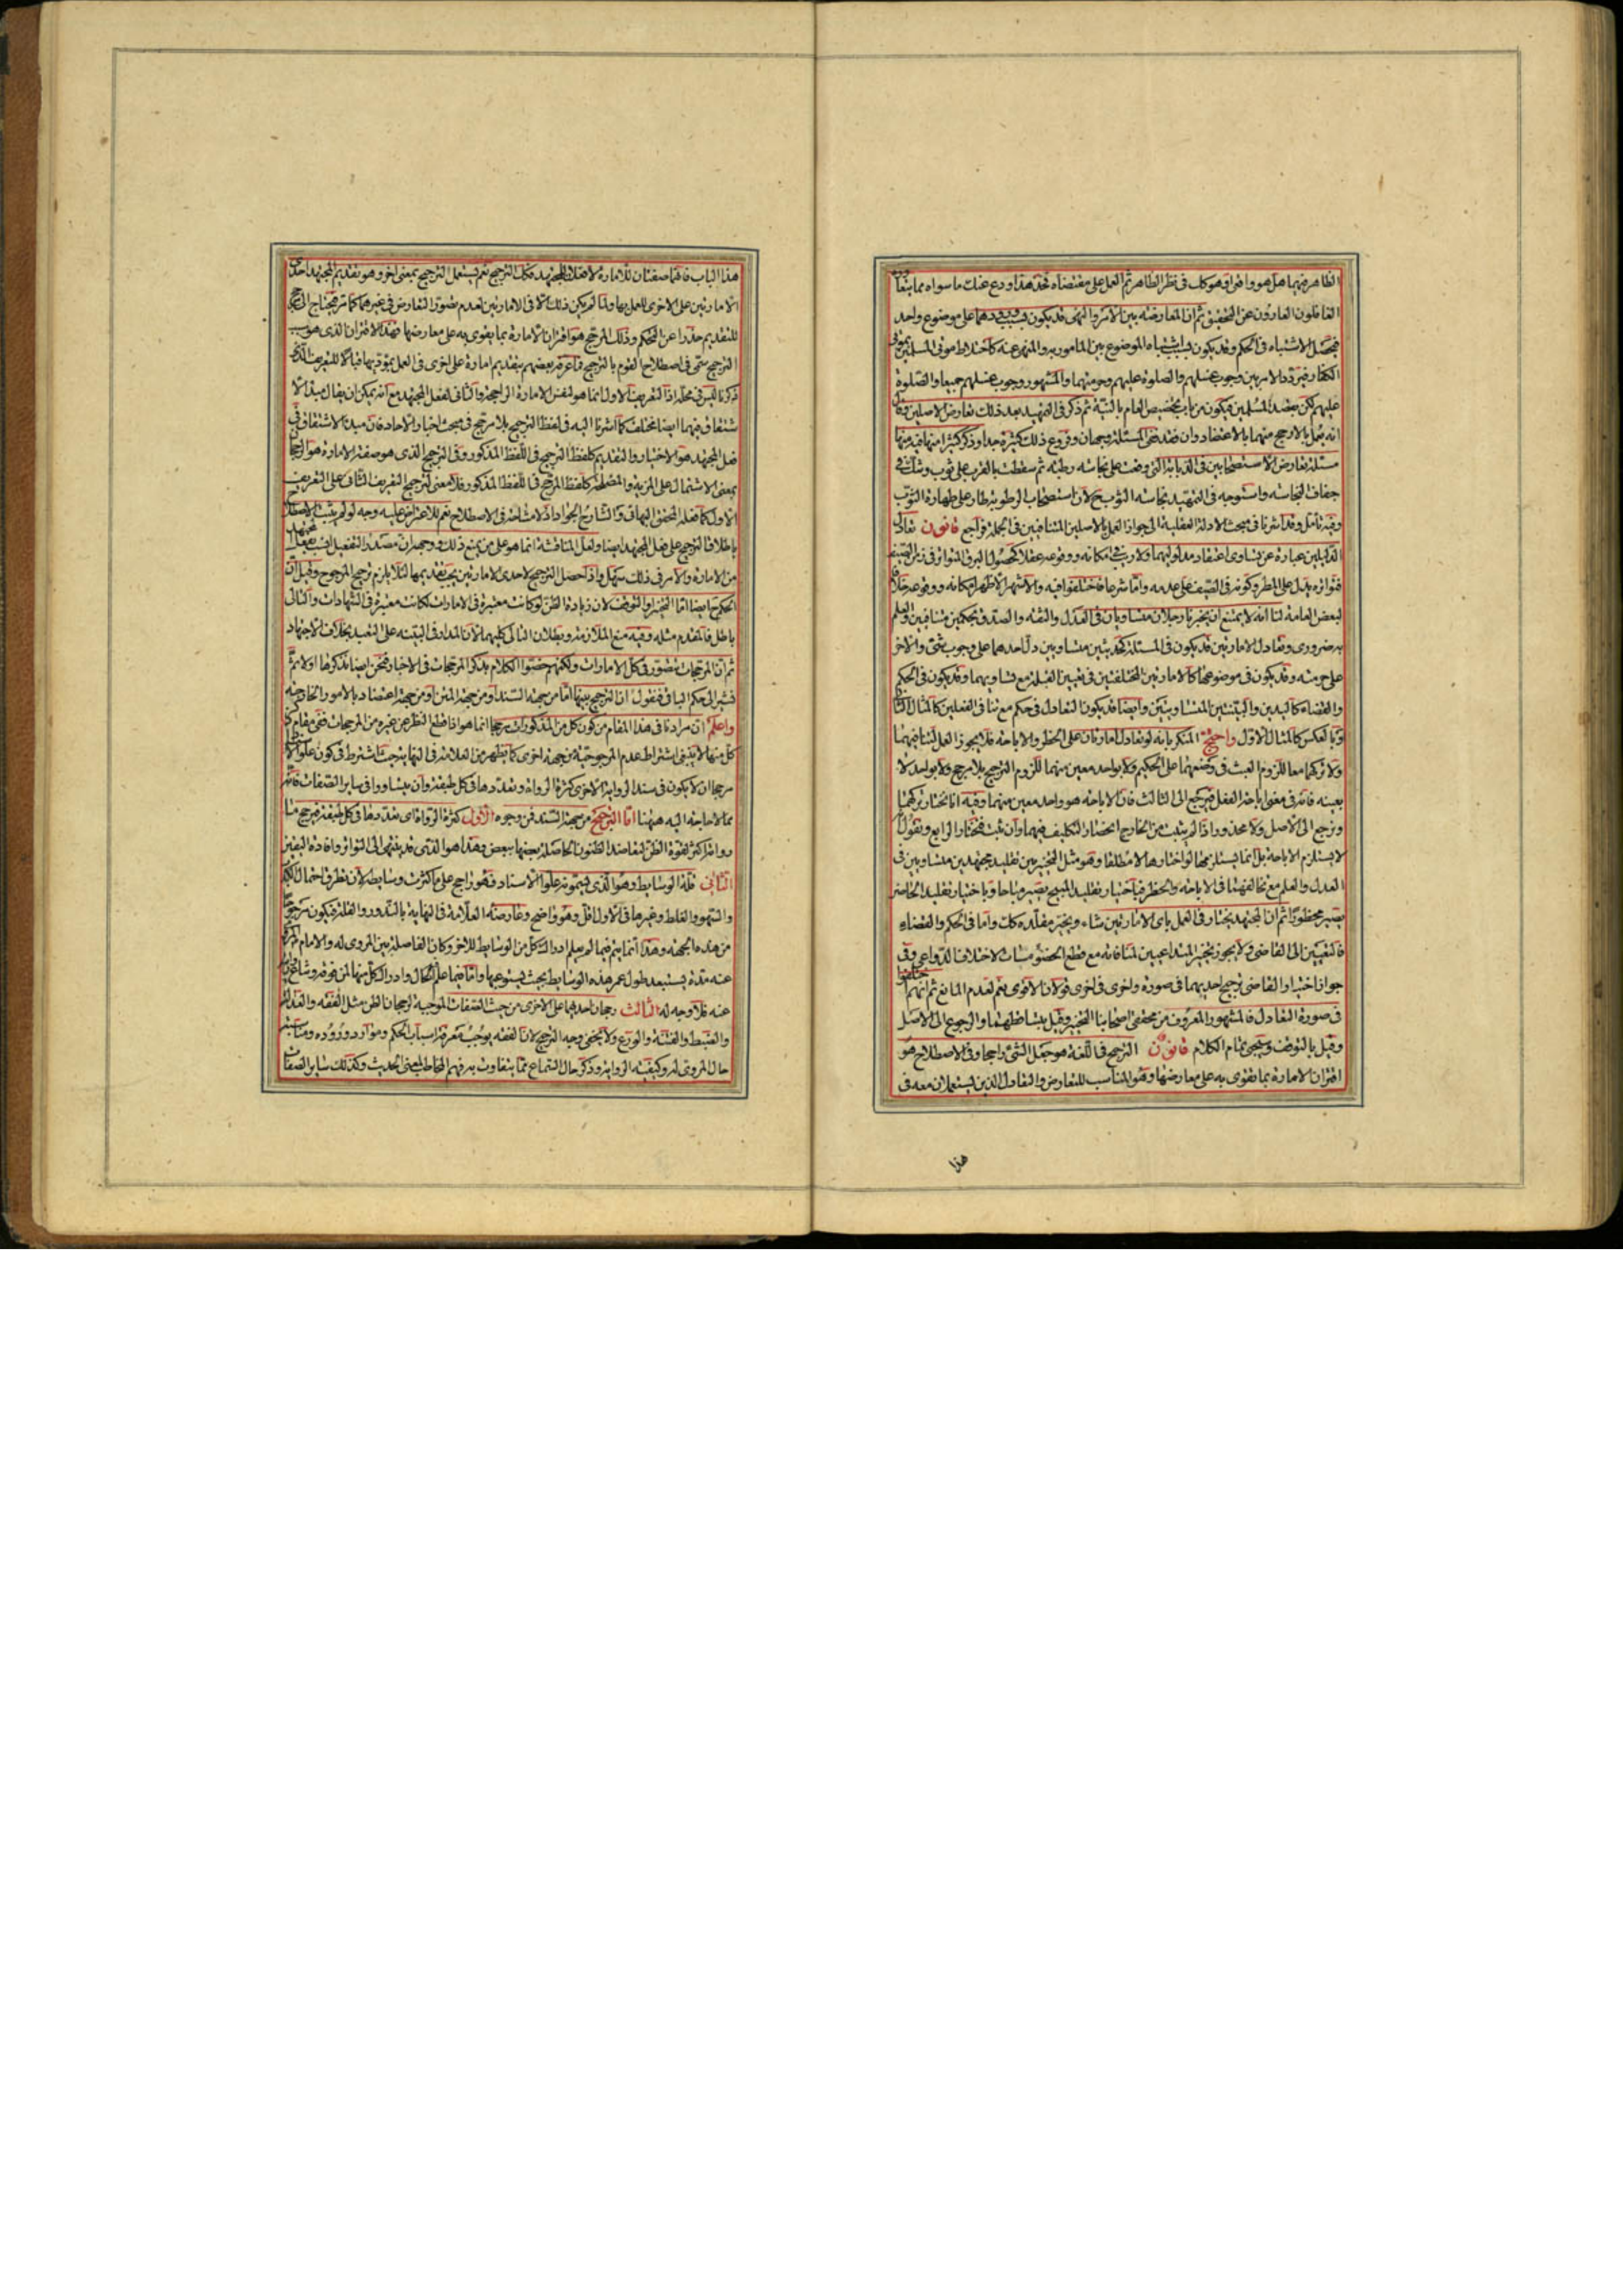 الظاهر فيهما هل هو وافراق وهو كك في نظر الظاهر ثم العمل على مقتضاه فخذ هذا ودع عنك ما سواه مما
الغافلون العارون عن التحقيق ثم ان المعارضة بين الامر والنهي قد يكون بسبب ورودهما على موضوع واحد
فيحصل الاشتباه في الحكم وقد يكون بسبب اشتباه الموضوع بين المامور به والمنهي عنه كاختلاط موتى المسلمين بموتى
الكفار فيتردد الامر بين وجوب غسلهم والصلوة عليهم وحرمتهما والمشهور وجوب غسلهم جميعا والصلوة
عليهم لكن بقصد المسلمين فيكون من باب تخصيص العام بالنية ثم ذكر في التمهيد بعد ذلك تعارض الاصلين وقال
انه يعمل بالارجح منهما بالاعتضاد وان فقد ففي المسئلة وجهان وفروع ذلك كثيرة جدا وذكر كثيرا منها فيه منها
مسئلة تعارض الاستصحابين في الذبابة التي وقعت على نجاسة رطبة ثم سقطت بالقرب على ثوب وشك في
جفاف النجاسة واستوجه في التمهيد نجاسة الثوب لان استصحاب الرطوبة طار على طهارة الثوب
وفيه تامل وقد اشرنا في مبحث الادلة العقلية الى جواز العمل بالاصلين المتنافيين في الجملة فراجع قانون تعادل
الدليلين عبارة عن تساوي اعتقاد مدلوليهما ولا ريب في امكانه ووقوعه عقلا كحصول البرق المتواتر في زمان الصيف
فتواتره يدل على المطر وكونه في الصيف على عدمه واما شرعا فاختلفوا فيه والاشهر الاظهر امكانه ووقوعه خلافا
لبعض العامة لنا انه لا يمتنع ان يخبرنا رجلان متساويان في العدل والثقة والصدق بحكمين متنافيين والعلم
به ضروري وتعادل الامارتين قد يكون في المسئلة كحديثين متساويين دل احدهما على وجوب شئ والاخر
على حرمته وقد يكون في موضوعها كالامارتين المختلفتين في تعيين القبلة مع تساويهما وقد يكون في الحكم
والقضاء كاليدين والبينتين المتساويتين وايضا قد يكون التعادل في حكم مع تنافي الفعلين كالمثال الثاني
وبالعكس كالمثال الاول واحتج المنكر بانه لو تعادل امارتان على الحظر والاباحة فلا يجوز العمل لتنافيهما
ولا تركهما معا للزوم العبث في وضعهما على الحكيم ولا بواحد معين منهما للزوم الترجيح بلا مرجح ولا بواحد لا
بعينه فانه في معنى اباحة الفعل فيرجع الى الثالث فان الاباحة هو واحد معين منهما وفيه انا نختار تركهما
ونرجع الى الاصل ولا محذور اذا لم يثبت من الخارج انحصار التكليف فيهما وان ثبت فنختار الرابع ونقول
لا يستلزم الاباحة بل انما يستلزمها لو اختارها لا مطلقا وهو مثل التخيير بين تقليد مجتهدين متساويين في
العدل والعلم مع تخالفهما في الاباحة والحظر فباختيار تقليد المبيح يصير مباحا وباختيار تقليد الحاظر
يصير محظورا ثم ان المجتهد يختار في العمل باي الامارتين شاء ويخير مقلده كك واما في الحكم والقضاء
فالتعيين الى القاضي ولا يجوز تخيير المتداعيين لمنافاته مع قطع الخصومات لاختلاف الدواعي وفي
جواز اختيار القاضي ترجيح احديهما في صورة واخرى في اخرى قولان الاقوى نعم لعدم المانع ثم انهم اختلفوا
في صورة التعادل فالمشهور المعروف من محققي اصحابنا التخيير وقيل بتساقطهما والرجوع الى الاصل
وقيل بالتوقف وسيجئ تمام الكلام قانون الترجيح في اللغة هو جعل الشئ راجحا وفي الاصطلاح هو
اقتران الامارة بما يقوى به على معارضها وهو المناسب للتعارض والتعادل الذين يستعملان معه في
هذا
هذا الباب فانهما صفتان للامارة لا فعلان للمجتهد فكك الترجيح نعم يستعمل الترجيح بمعنى اخر وهو تقديم المجتهد احدى
الامارتين على الاخرى للعمل بها ولما لم يكن ذلك الا في الامارتين لعدم تصور التعارض في غيرهما كما مر فيحتاج الى مرجح
للتقديم حذرا عن التحكم وذلك المرجح هو اقتران الامارة بما يقوى به على معارضها فهذا الاقتران الذي هو سبب
الترجيح سمي في اصطلاح القوم بالترجيح فما عرفه بعضهم بتقديم امارة على اخرى في العمل بمؤديها قبالا للتعريف الذي
ذكرنا ليس في محله اذ التعريف الاول انما هو لنفس الامارة الراجحة والثاني لفعل المجتهد مع انه يمكن ان يقال مبدا الا
شتقاق فيهما ايضا مختلف كما اشرنا اليه في لفظ الترجيح بلا مرجح في مبحث اخبار الاحاد فان مبدا الاشتقاق في
فعل المجتهد هو الاختيار والتقديم كلفظ الترجيح في اللفظ المذكور وفي الترجيح الذي هو صفة الامارة هو الرجحان
بمعنى الاشتمال على المزية والمصلحة كلفظ المرجح في اللفظ المذكور فلا معنى لترجيح التعريف الثاني على التعريف
الاول كما فعله المحقق البهائي والشارح الجواد اذ لا مشاحة في الاصطلاح نعم للاعتراض عليه وجه لو لم يثبت الاصطلاح
باطلاق الترجيح على فعل المجتهد ايضا ولعل المناقشة انما هو على من يمنع ذلك ووجهه ان مصدر التفعيل انسب بفعل المجتهد
من الامارة والامر في ذلك سهل واذا حصل الترجيح لاحدى الامارتين يجب تقديمها لئلا يلزم ترجيح المرجوح وقيل ان
الحكم ايضا اما التخيير او التوقف لان زيادة الظن لو كانت معتبرة في الامارات لكانت معتبرة في الشهادات والتالي
باطل فالمقدم مثله وفيه منع الملازمة وبطلان التالي كليهما لان المدار في البينة على التعبد بخلاف الاجتهاد
ثم ان المرجحات يتصور في كل الامارات ولكنهم خصوا الكلام بذكر المرجحات في الاخبار فنحن ايضا نذكرها اولا ثم
نشير الى حكم الباقي فنقول ان الترجيح بينها اما من جهة السند او من جهة المتن او من جهة اعتضاد بالامور الخارجة
واعلم ان مرادنا في هذا المقام من كون كل من المذكورات مرجحا انما هو اذا قطع النظر عن غيره من المرجحات ففي مقام ذكر
كل منها لا ينبغي اشتراط عدم المرجوحية من جهة اخرى كما يظهر من العلامة في النهاية حيث اشترط في كون علو الاسناد
مرجحا ان لا يكون في سند الرواية الاخرى كثرة الرواة وتعددها في كل طبقة وان يتساووا في ساير الصفات فانه
مما لا حاجة اليه ههنا اما الترجيح من جهة السند فمن وجوه الاول كثرة الرواة اي تعددها في كل طبقة فيرجح ما
رواته اكثر لقوة الظن لتعاضد الظنون الحاصلة بعضها ببعض وهذا هو الذي قد ينتهي الى التواتر وافادة اليقين
الثاني قلة الوسايط وهو الذي يسمونه علو الاسناد فهو راجح على ما كثرت وسايطه لان تطرق احتمال الكذب
والسهو والغلط وغيرها في الاول اقل وهو واضح وعارضه العلامة في النهاية بالندور والقلة فيكون مرجوحا
من هذه الجهة وهذا انما يتم فيما لم يعلم ادراك كل من الوسايط للاخر وكان الفاصلة بين المروي له والامام المروي
عنه مدة يستبعد طول عمر هذه الوسايط بحيث يستوعبها واما فيما علم الحال وادراك كل منها لمن فوقه وشاع الرواية
عنه فلا وجه له الثالث رجحان احديهما على الاخرى من حيث الصفات الموجبة لرجحان الظن مثل الفقه والعدالة
والضبط والفطنة والورع ولا يخفى وجه الترجيح لان الفقه يوجب معرفة اسباب الحكم وموارد وروده ومناسبة
حال المروي له وكيفية الرواية وذكر حال السماع مما يتفاوت به فهم المخاطب لمعنى الحديث وكذلك ساير الصفات